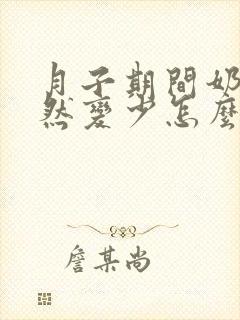 月子期間奶
然變少怎麼
詹某尚